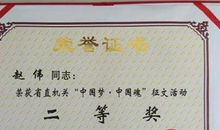 荣誉证书
赵伟同志：
荣获省直机关“中国梦·中国魂”征文活动
二等奖